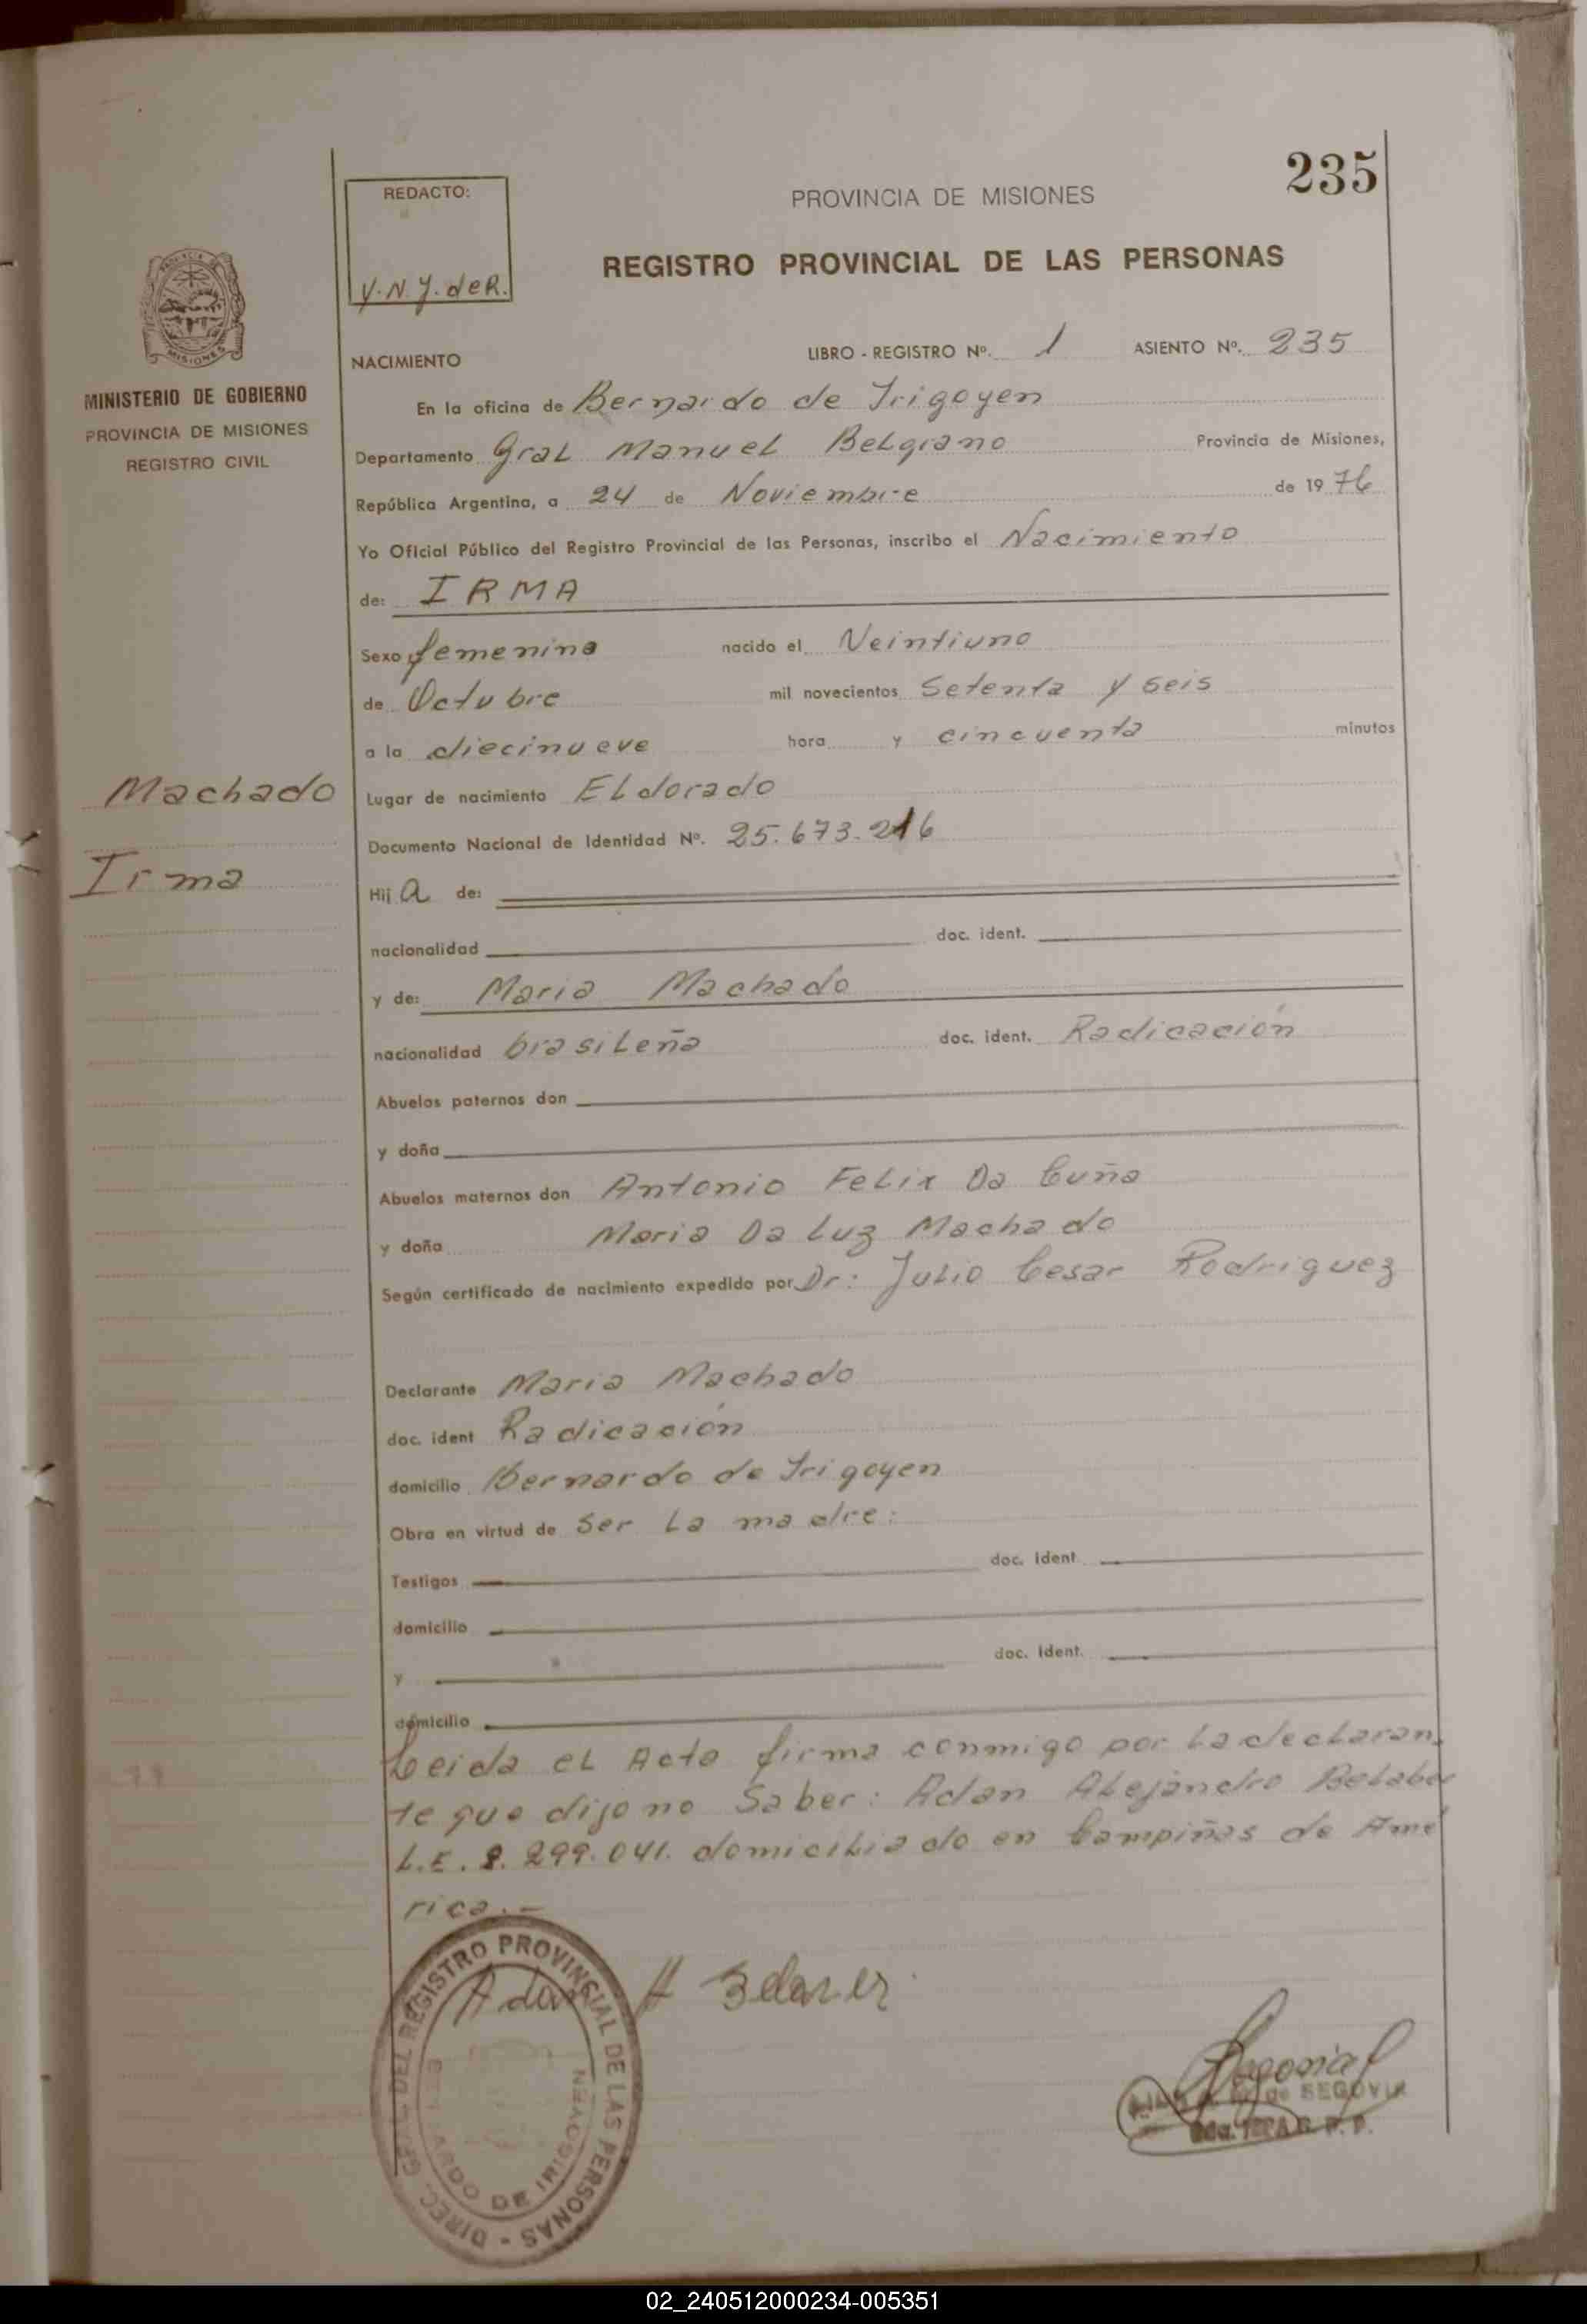 235
REDACTO:
Y.N.Y. de R.
PROVINCIA DE MISIONES
REGISTRO PROVINCIAL DE LAS PERSONAS
MISIONES
MINISTERIO DE GOBIERNO
PROVINCIA DE MISIONES
REGISTRO CIVIL
NACIMIENTO LIBRO - REGISTRO Nº. 1 ASIENTO Nº. 235
En la oficina de Bernardo de Irigoyen
Departamento Gral Manuel Belgrano Provincia de Misiones,
República Argentina, a 24 de Noviembre de 1976
Yo Oficial Público del Registro Provincial de las Personas, inscribo el Nacimiento
de: IRMA
Sexo femenino nacido el Veintiuno
de Octubre mil novecientos Setenta y seis
a la diecinueve hora y cincuenta minutos
Machado
Lugar de nacimiento Eldorado
Documento Nacional de Identidad Nº. 25.673.216
Irma
Hija de:
nacionalidad doc. ident.
y de: Maria Machado
nacionalidad brasileña doc. ident. Radicación
Abuelos paternos don
y doña
Abuelos maternos don Antonio Felix Da Cuña
y doña Maria Da Luz Machado
Según certificado de nacimiento expedido por Dr: Julio Cesar Rodriguez
Declarante Maria Machado
doc. ident Radicación
domicilio Bernardo de Irigoyen
Obra en virtud de Ser La madre:
Testigos doc. ident
domicilio
y doc. ident.
domicilio
Leida el Acta firma conmigo por la declaran
te que dijo no Saber: Adan Alejandro
L.E. 8.299.041. domiciliado en Campiñas de Amé
rica.-
Adan A
DIREC. GRAL. DEL REGISTRO PROVINCIAL DE LAS PERSONAS -
BERNARDO DE IRIGOYEN
Segovia
de SEGOVIA
02_240512000234-005351